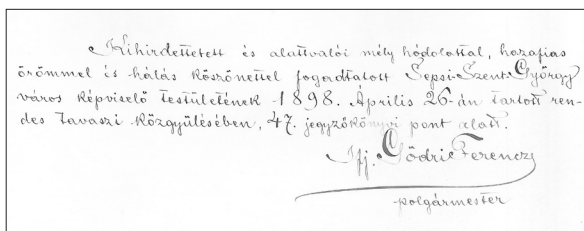 Kihirdettetett és alattvalói mély hódolattal, hazafias
örömmel és hálás köszönettel fogadtatott Sepsi-Szent-György
város képviselő testületének 1898. Április 26-án tartott ren-
des tavaszi közgyűlésében, 47. jegyzőkönyvi pont alatt.
Ifj. Gödri Ferencz
polgármester